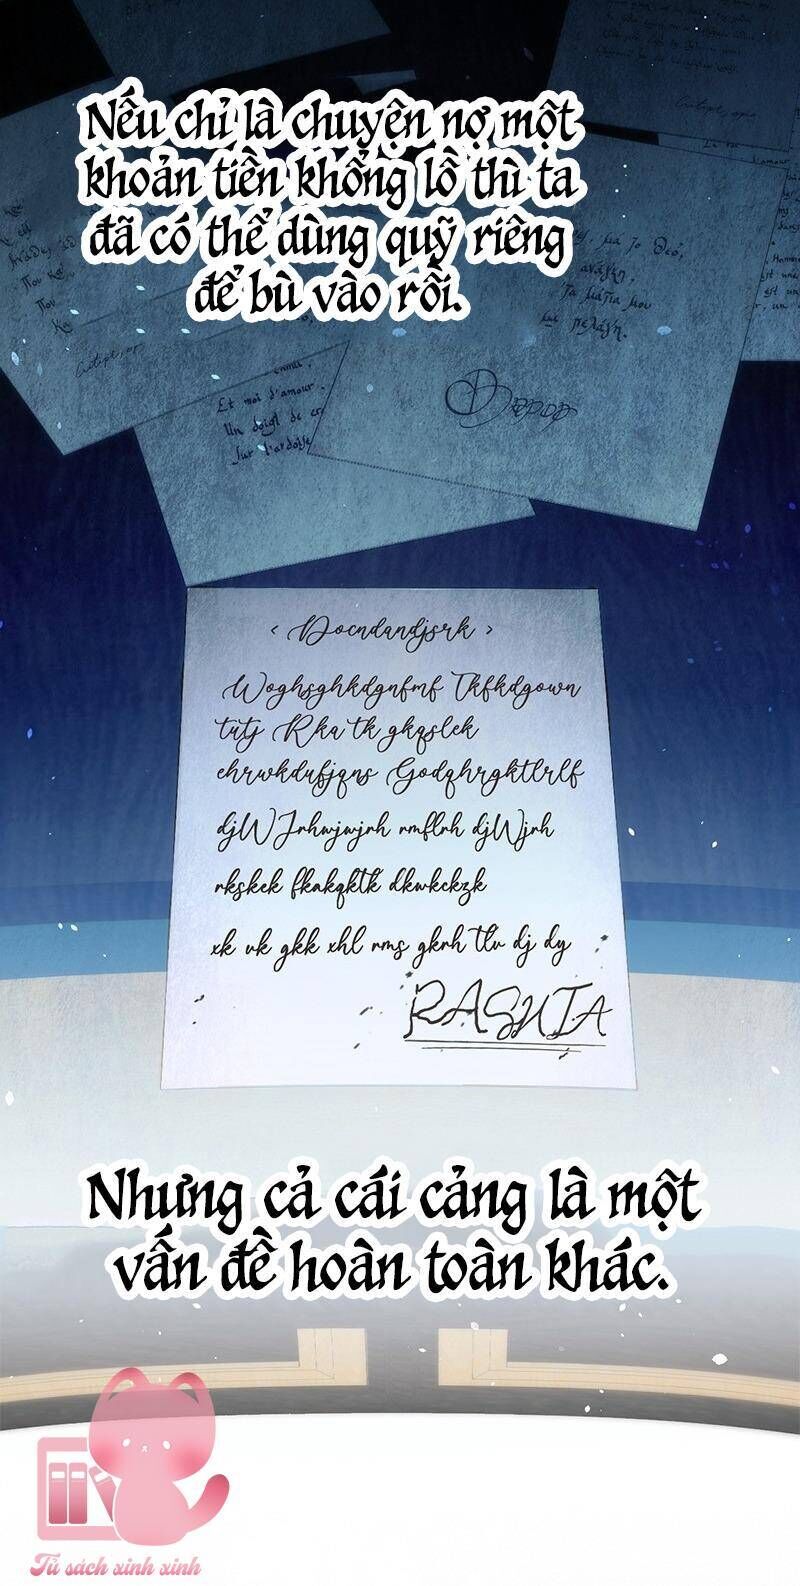 Nếu chỉ là chuyện nợ một
khoản tiền khổng lồ thì ta
đã có thể dùng quỹ riêng
để bù vào rồi.
μα το Θεό,
ανάγκη,
Τα μάτια μου
με πελάγη.
Et moi d'amour
Un doigt de
Sur l'ardoise
< Docndandjsrk >
Woghsghkdgnfmf Tkfkdgown
tutj Rka tk gkqslek
chrwkdufjqns Godqhrgktlrlf
djWJrhwjwjrh rmflrh djWjrh
rkskek fkakqktk dkwkckzk
xk vk gkk xhl rms gkrh tlv dj dy
RASHIA
Nhưng cả cái cảng là một
vấn đề hoàn toàn khác.
Tủ sách xinh xinh